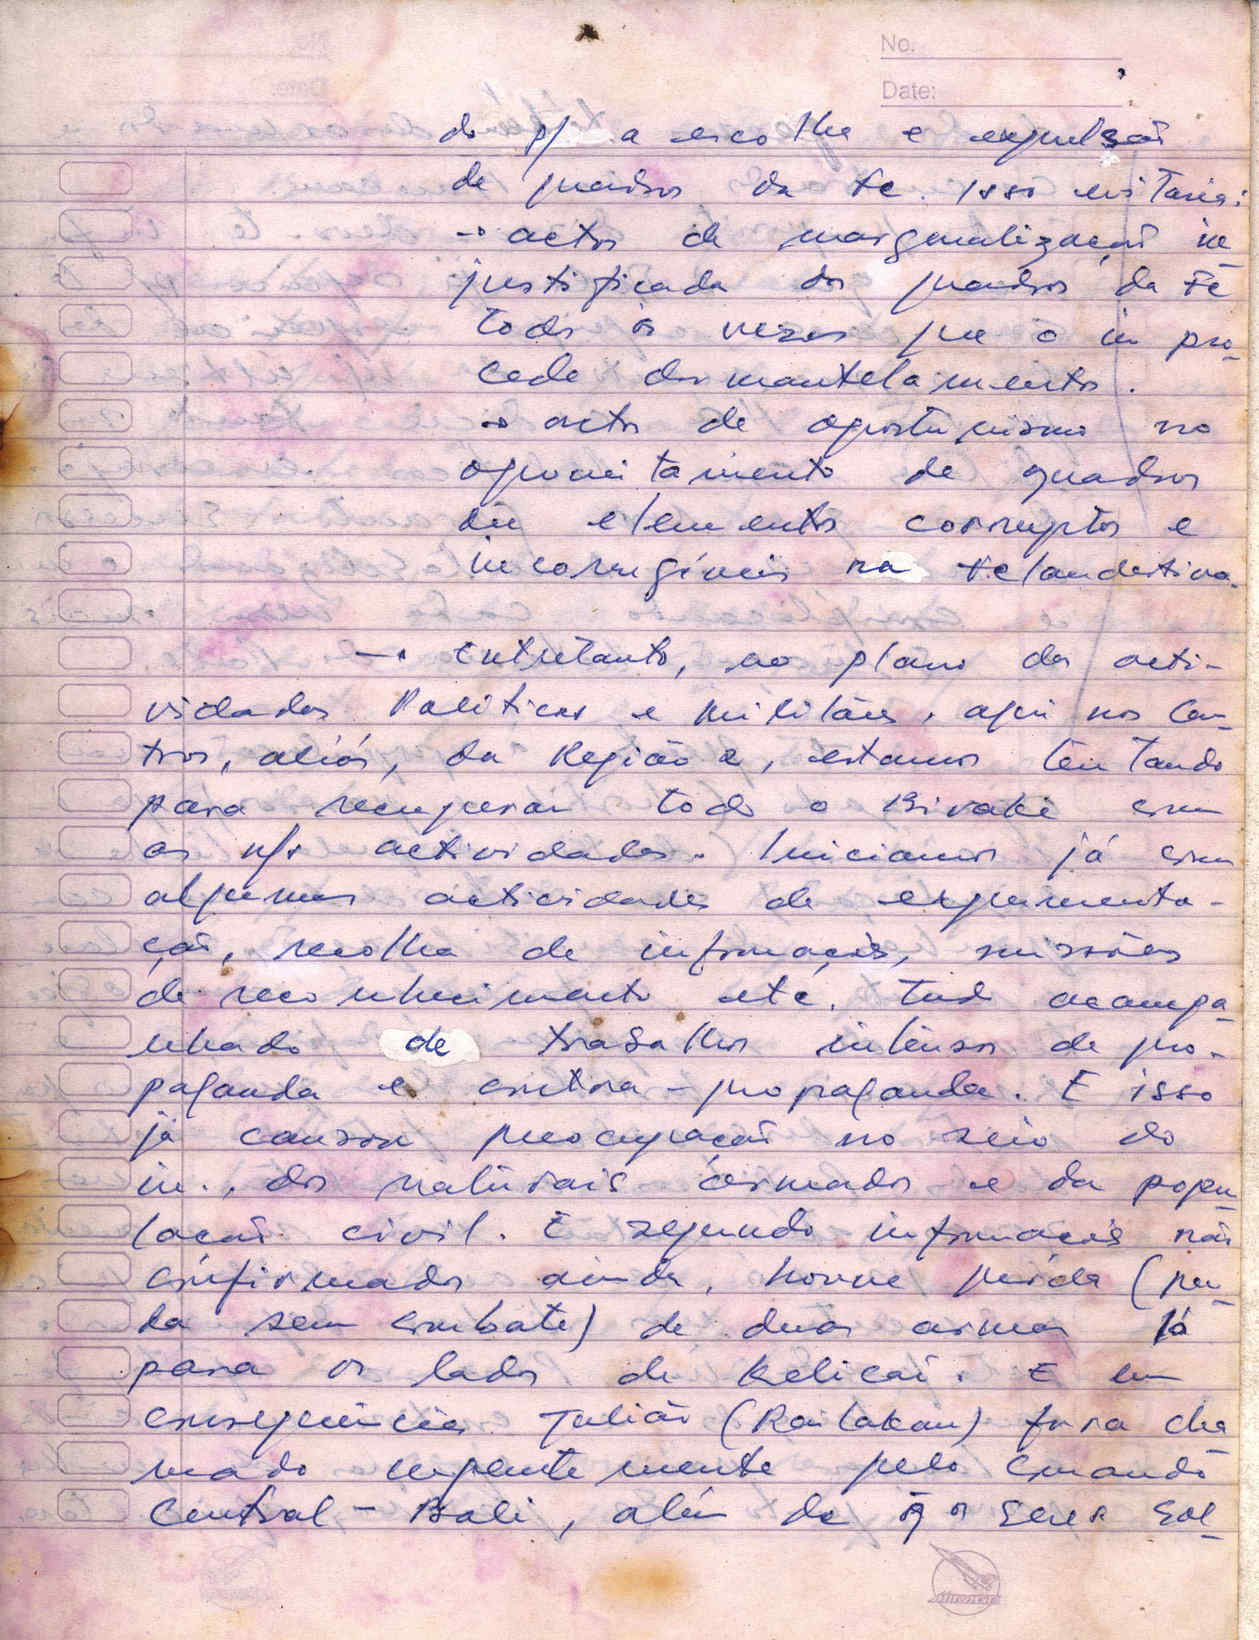 No.
Date:
do p/ a escolha e expulsão
de quadros da Fc. Isso evitaria:
→ actos de marginalização in_
justificada dos quadros da Fc
todos os vezes que o in pro_
cede desmantelamentos.
→ actos de oportunismo no
aproveitamento de quadros
em elementos corruptos e
incorrigíveis na Fclandestina.
→ Entretanto, no plano das acti-
vidades Políticas e Militares, aqui nos Cen_
tros, aliás, da Região 2, estamos tentando
para recuperar todo o Bivake com
as n/s actividades. Iniciamos já com
algumas actividades de experimenta-
ção, recolha de informações, missões
de reconhecimento etc. Tudo acompa_
nhado de trabalhos intensos de pro-
paganda e contra-propaganda. E isso
já causou preocupação no seio do
in., dos naturais armados e da popu_
lação civil. E segundo informações não
confirmados ainda, houve perda (per_
da sem combate) de duas armas lá
para os lados de Kelicai. E em
consequências Julião (Railakan) fora cha_
mado urgentemente pelo Comando
Central - Bali, além de os seus sol_